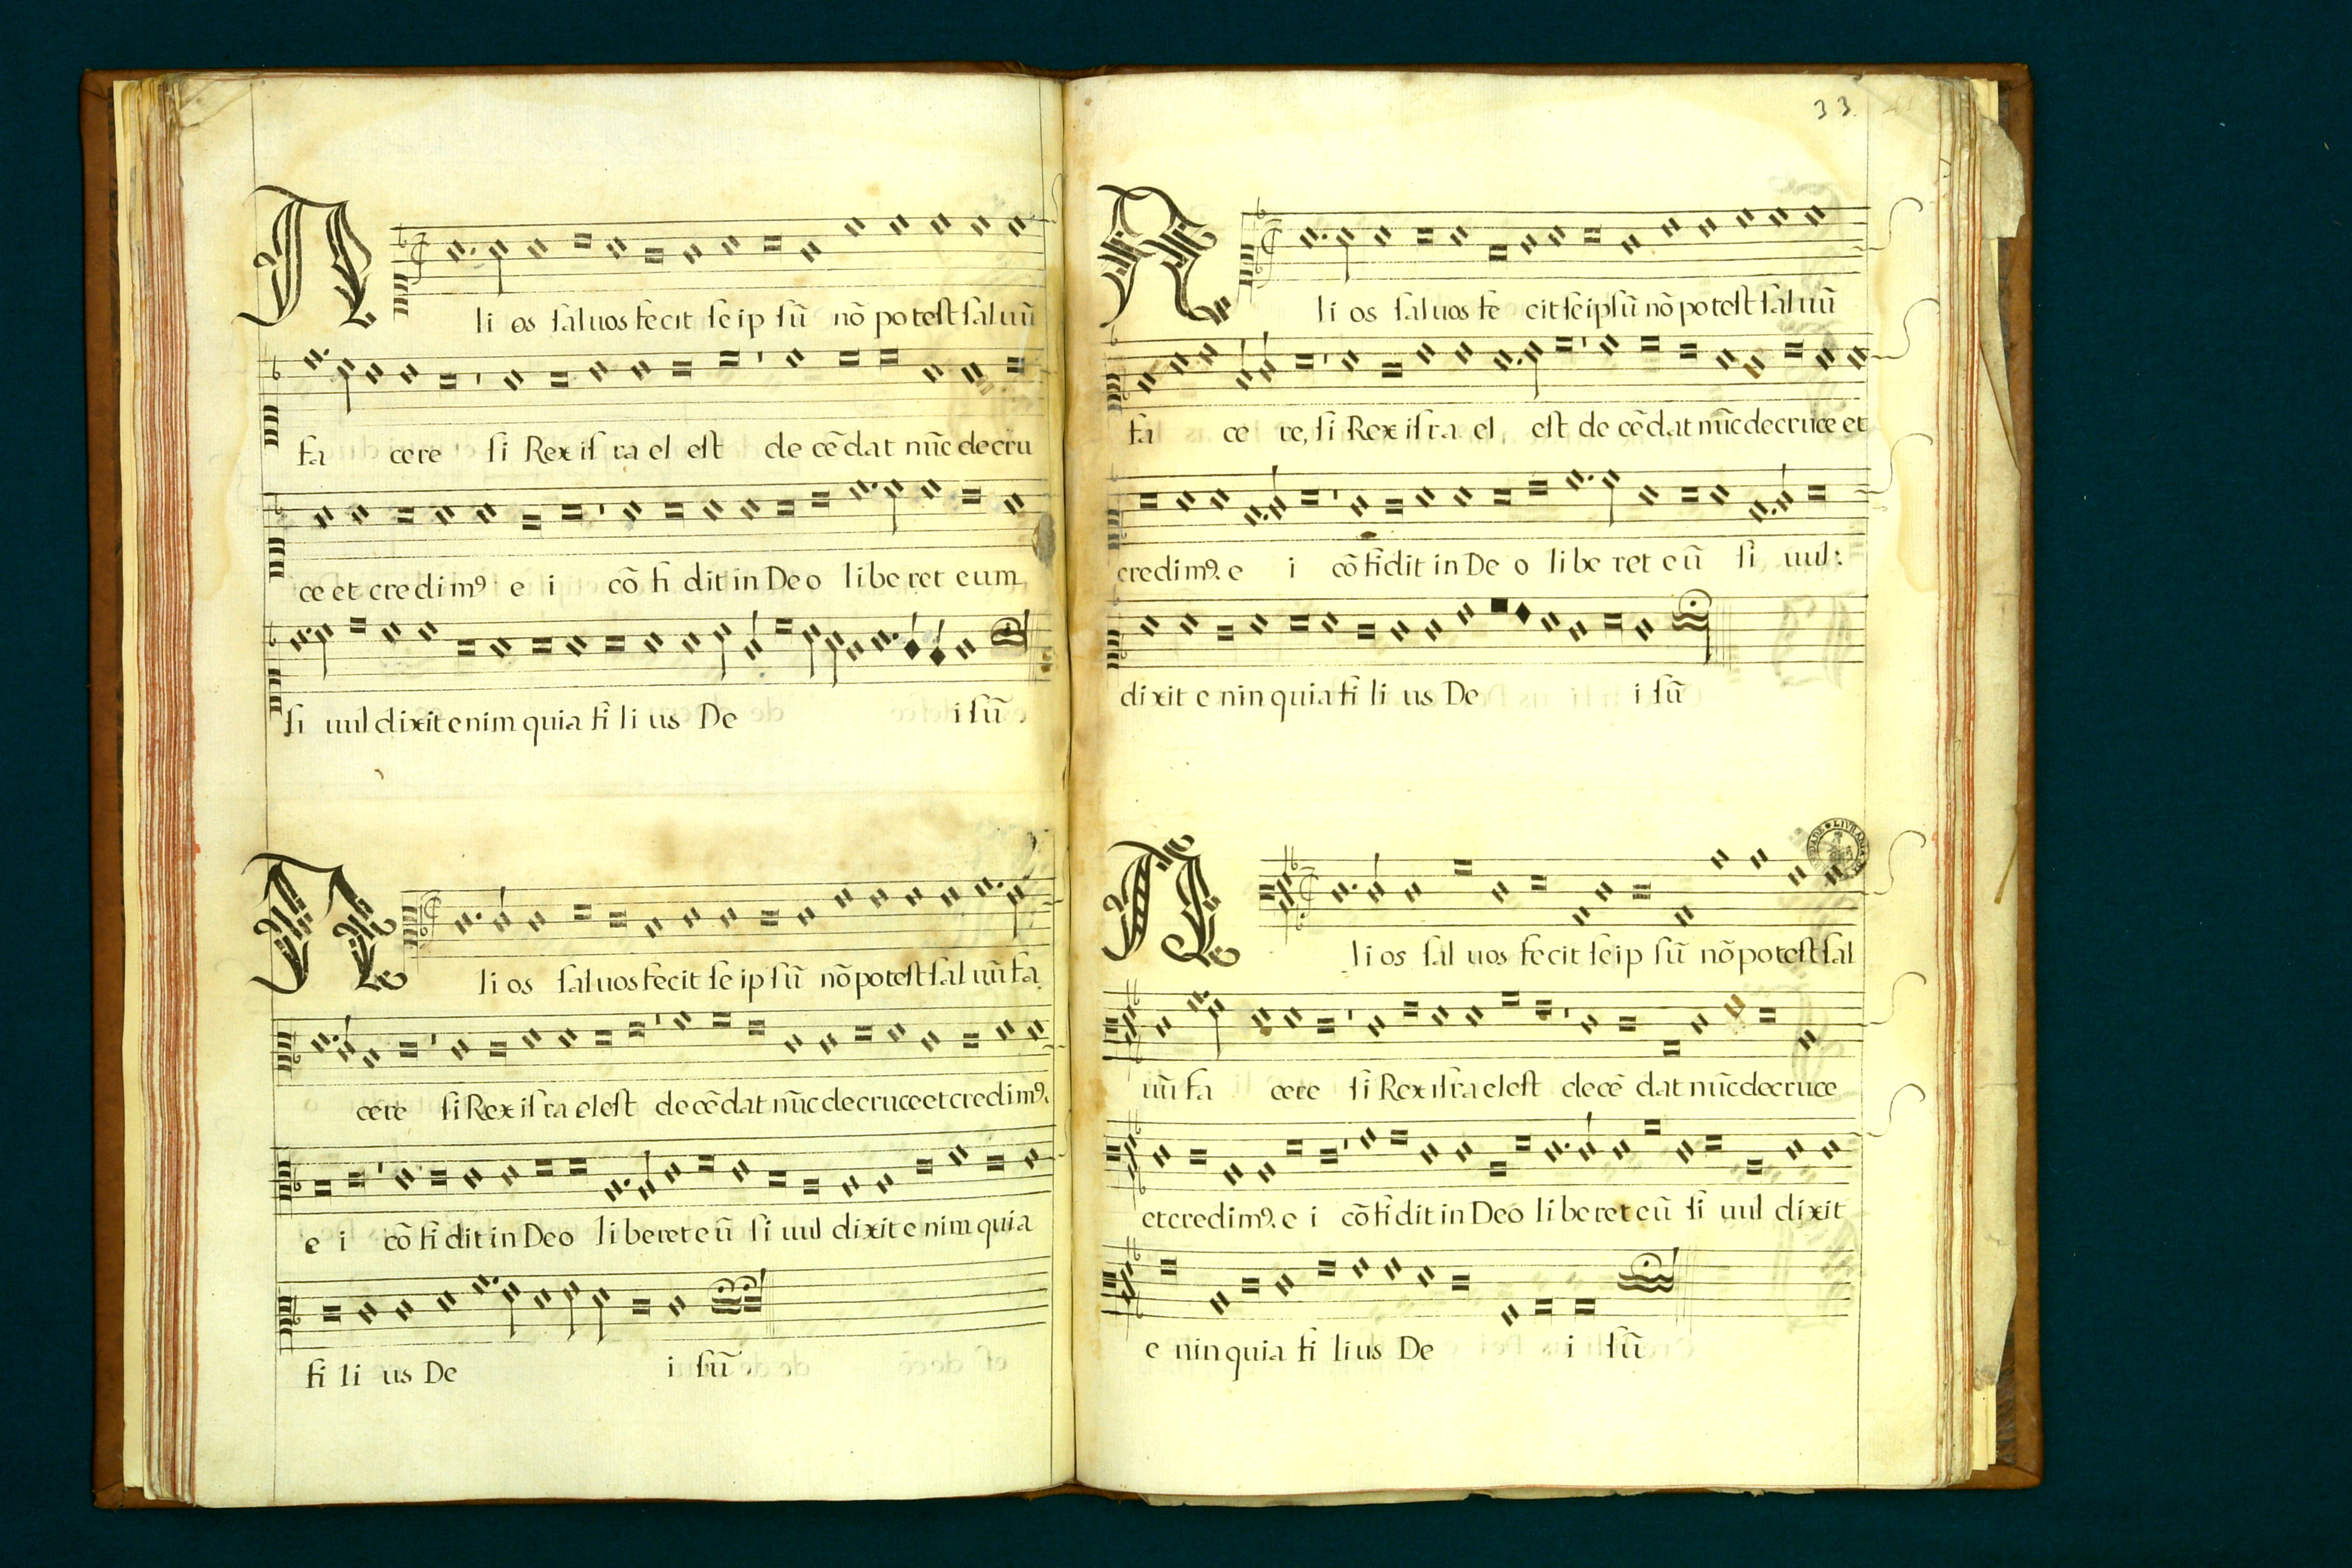 A li os ſal uos fe cit ſe ip ſũ nõ po teſt ſal uũ
fa ce re ſi Rex iſ ra el eſt de cẽ dat nũc de cru
ce et cre di m⁹ e i cõ fi dit in De o li be ret e um
ſi uul dixit enim quia fi li us De i ſũ
A li os ſal uos fe cit ſe ip ſũ nõ po teſt ſal uũ fa
ce re ſi Rex iſ ra el eſt de cẽ dat nũc de cru ce et cre di m⁹.
e i cõ fi dit in De o li be ret e ũ ſi uul dixit e nim quia
fi li us De i ſũ
33
A li os ſal uos fe cit ſe ip ſũ nõ po teſt ſal uũ
fa ce re, ſi Rex iſ ra el, eſt de cẽ dat nũc de cru ce et
cre di m⁹. e i cõ fi dit in De o li be ret e ũ ſi uul:
dixit e nin quia fi li us De i ſũ
A li os ſal uos fe cit ſe ip ſũ nõ po teſt ſal
uũ fa ce re ſi Rex iſ ra el eſt de cẽ dat nũc de cru ce
et cre di m⁹. e i cõ fi dit in De o li be ret e ũ ſi uul dixit
e nin quia fi li us De i ſũ